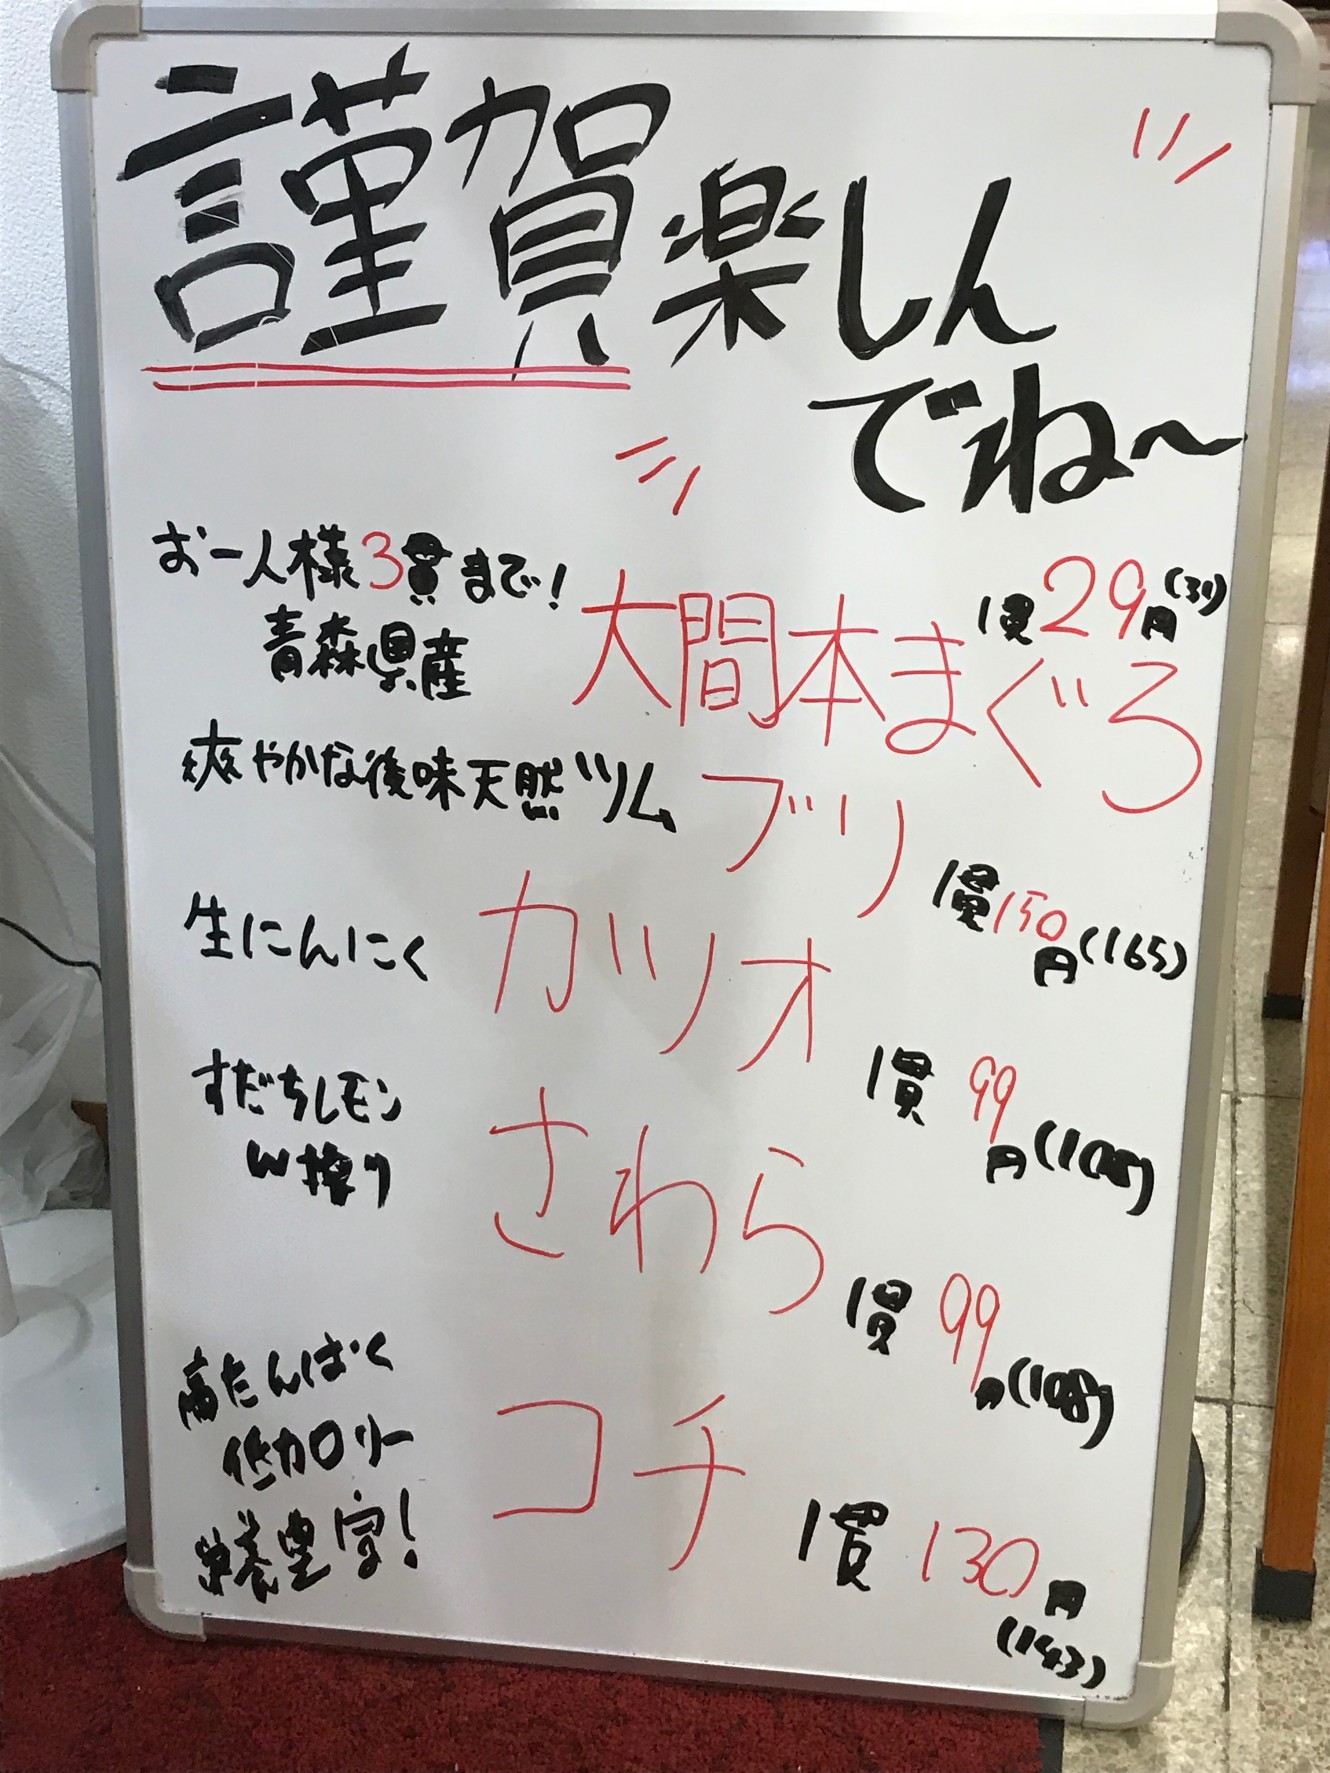 謹賀楽しん
でね〜
お一人様3貫まで!
青森県産
大間本まぐろ
1貫29円(31)
爽やかな後味天然ツム
ブリ
1貫150円(165)
生にんにく
カツオ
1貫 99円(108)
すだちレモン
W搾り
さわら
1貫 99円(108)
高たんぱく
低カロリー
栄養豊富!
コチ
1貫 130円
(143)